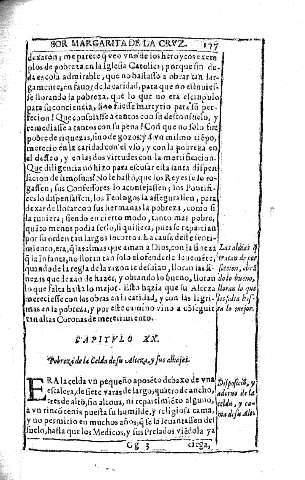 SOR MARGARITA DE LA CRVZ. 177
dexaron; me parece q̃ veo vno de los heroycos exem
plos de pobreza en la Iglesia Catolica; porque sin du-
da es cosa admirable, que no bastasse a obrar tan lar-
gamente en fauor de la caridad, para que no estuuies-
se llorando la pobreza, que lo que no era escrupulo
para su conciencia, no fuesse martyrio para su per-
feccion! Que consultasse a tantos con su desconsuelo, y
remediasse a tantos con su pena! Con que no solo fue
pobre de riquezas, sino de gozos; y a vn mismo tiẽpo,
merecio en la caridad con el vso, y con la pobreza en
el deseo, y en las dos virtudes con la mortificacion.
Que diligencia no hizo para escusar esta santa dispen-
sacion de limosnas? No le bastò, que los Reyes se lo ro-
gassen; sus Confessores lo aconsejassen; los Pontifi-
ces lo dispensassen; los Teologos la assegurassen, para
dexar de llorar con sus hermanas la pobreza, como si
la tuuiera; siendo en cierto modo, tanto mas pobre,
quãto menos podia serlo, si quisiera, pues se repartian
por su orden tan largos socorros. La causa deste senti-
miento, era,
la Infanta, no lloran tan solo el ofenderle los
quando de la regla de la razon se desuian, lloran las fi-
nezas que dexan de hazer, y obrando lo bueno, lloran
lo que les falta hasta lo mejor. Esto hazia que su Alteza
mereciesse con las obras en la caridad, y con las lagri-
mas en la pobreza, y por este camino vino a conseguir
tan altas Coronas de merecimiento.
Las almas q̃
tratan de per
feccion, obrã
do lo bueno,
lloran lo que
les falta has-
ta lo mejor.
CAPITVLO XX.
Pobreza de la Celda de su Alteza, y sus alhajas.
ERA la celda vn pequeño aposẽto debaxo de vna
escalera, de siete varas de largo, quatro de ancho,
tres de alto, sin alcoua, ni repartimiẽto alguno,
a vn rincõ tenia puesta su humilde, y religiosa cama,
y no permitio en muchos años, q̃ se la leuantassen del
suelo, hasta que los Medicos, y sus Prelados viẽdola ya
Disposiciõ, y
adorno de la
celda, y ca-
ma de su Alte.
Gg 3
ciega,